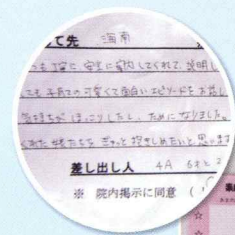 て先 海南
ても丁寧に安全に案内してくれて、説明し
ても子育ての可愛くて面白いエピソードをお話し
気持ちがほっこりしたし、ためになりました。
くれた娘たちをぎゅっと抱きしめたいと思います
差し出し人 4A
※ 院内掲示に同意 (
☆
☆
☆